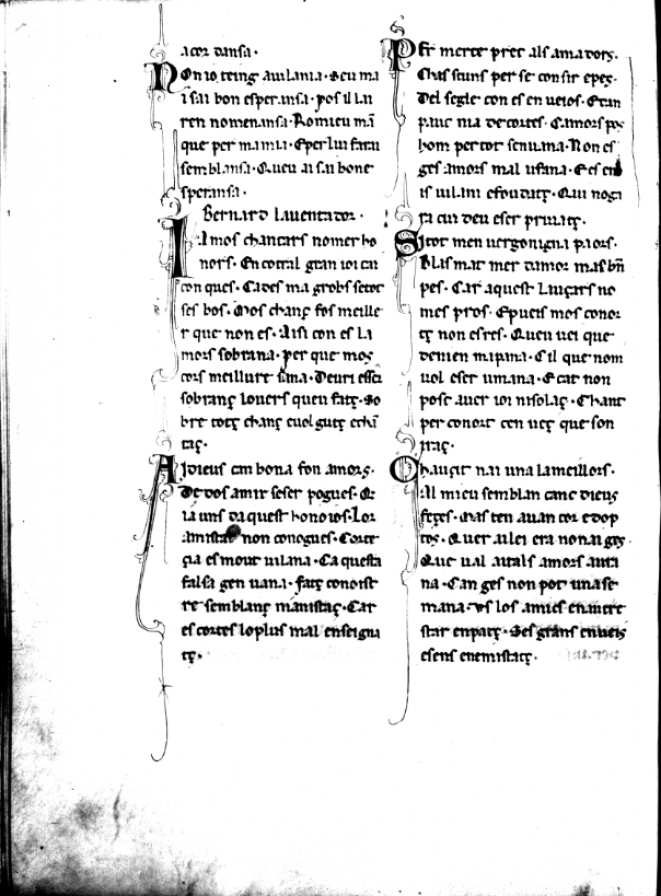 acor dansa·
Non io teing auilania·Seu ma
i sai bon esperansa·pos il lu
ren nomenansa·Romieu mā
que per mamia·Eper lui fatu
semblansa·Queu ai sa bone
speransa·
Bernard lauentador·
Iamos chantars nomer ho
nors· Encotral gran ioi cu
con ques· Cades ma grobs setor
ses bos· Mos chanç fos meille
r que non es· Aisi con es la
mors sobrana· per que mos
cors meillure sana·Deuri esser
sobranç louers queu fatç·So
bre totç chanç euol gutç echī
tatç·
Aidieus cm bona fon amors·
De dos amir seser pogues·Q
ia uns daquest honoios·Lor
amistat non conogues·Corte
çia es mout uilana·Ca questa
falsa gen uana· fatç conoist
re semblanç manistaç·Car
es cortes loplus mal enseigna
tç·
Per merce prec als amadors·
Chascuns per se consir epes·
Del segle con es en ueios·Ecan
pauc nia de cortes· Camors pos
hom per tot senuana·Non es
ges amors mal ufana·Ees en
is uilani efoudatç·Qui noga
ra cui deu eser priuatç·
Sitot men uergonigna paors·
Blasmar mer damor mas bn̄
pes· Car aquest lauçars no
mes pros· Epueis mos conor
tç non es res· Queu uei que
deuien mi pina·Cil que nom
uol eser umana·Ecar non
posc auer ioi nisolaç·Chant
per conort cen ueç que son
iraç·
Chauçit nai una lameillors·
Al mieu semblan canc dieus
feçes· Mas ten auan cor edop
tos· Quer ai lei era nonai ges·
Que ual aitals amors auta
na· Can ges non pot unase
mana·us los amics en merc
star enpatç· Ses grans enueis
esens enemistatç·